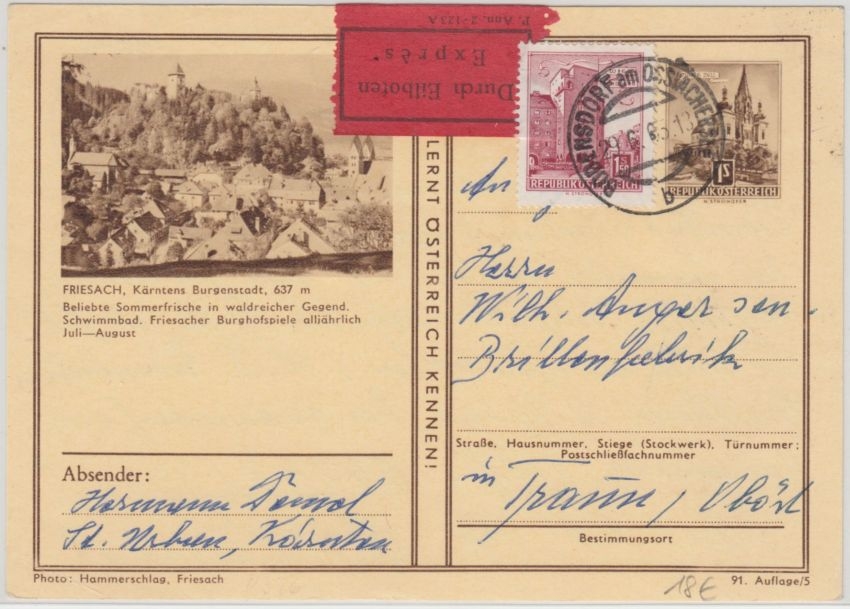 P. Ann. 2-123A
Durch Eilboten
Exprès
1 S 50
REPUBLIK ÖSTERREICH
H. STROHOFER
1 S
REPUBLIK ÖSTERREICH
H. STROHOFER
BODENSDORF am OSSIACHERSEE
b
LERNT ÖSTERREICH KENNEN!
FRIESACH, Kärntens Burgenstadt, 637 m
Beliebte Sommerfrische in waldreicher Gegend.
Schwimmbad. Friesacher Burghofspiele alljährlich
Juli—August
Absender:
Hermann
St. Urban, Kärnten
Photo: Hammerschlag, Friesach
An
Herrn
Wilh. Anger sen.
Brillenfabrik
Straße, Hausnummer, Stiege (Stockwerk), Türnummer;
Postschließfachnummer
in Traun, Oböst
Bestimmungsort
18€
91. Auflage/5